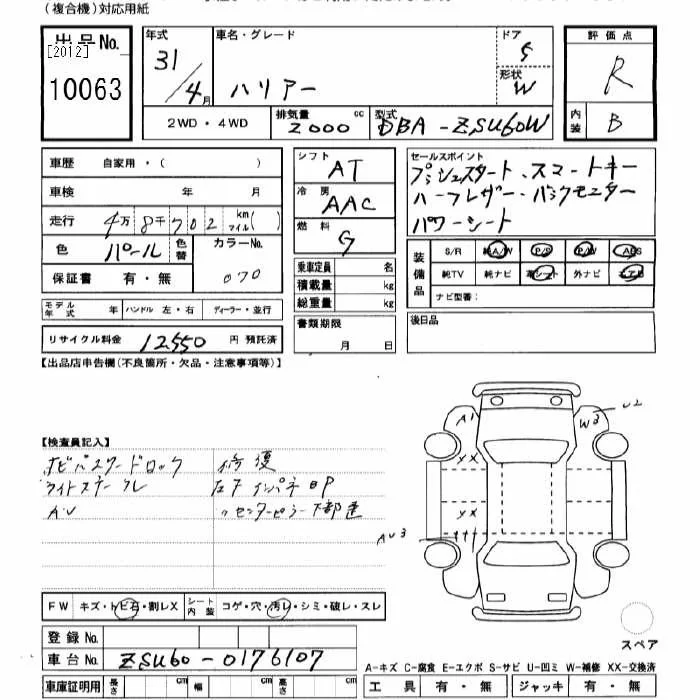 (複合機)対応用紙
出品No.
[2012]
10063
年式
31/4月
車名・グレード
ハリアー
ドア
5
形状
W
評価点
R
内装
B
2WD・4WD
排気量
2000
cc
型式
DBA-ZSU60W
車歴
自家用・(　　　)
車検　　年　　月
走行
4万8千702
km
マイル
(　)
色
パール
色替
カラーNo.
070
保証書
有・無
シフト
AT
冷房
AAC
燃料
G
乗車定員　名
積載量　kg
総重量　kg
セールスポイント
プッシュスタート・スマートキー
ハーフレザー・バックモニター
パワーシート
装備品
S/R
純A/W
P/S
P/W
ABS
純TV
純ナビ
革シート
外ナビ
エアB
ナビ型番:
モデル年式　年
ハンドル　左・右
ディーラー・並行
リサイクル料金　12,550　円 預託済
書類期限
月　日
後日品
【出品店申告欄(不良箇所・欠品・注意事項等)】
【検査員記入】
修復
AW
A1
W3
U2
XX
XX
FW
キズ・トビ石・割レX
シート内装
コゲ・穴・汚レ・シミ・破レ・スレ
登録No.
車台No.
ZSU60-0176107
車庫証明用
長さ　cm
幅　cm
高さ　cm
スペア
A-キズ C-腐食 E-エクボ S-サビ U-凹ミ W-補修 XX-交換済
工具　有・無
ジャッキ　有・無